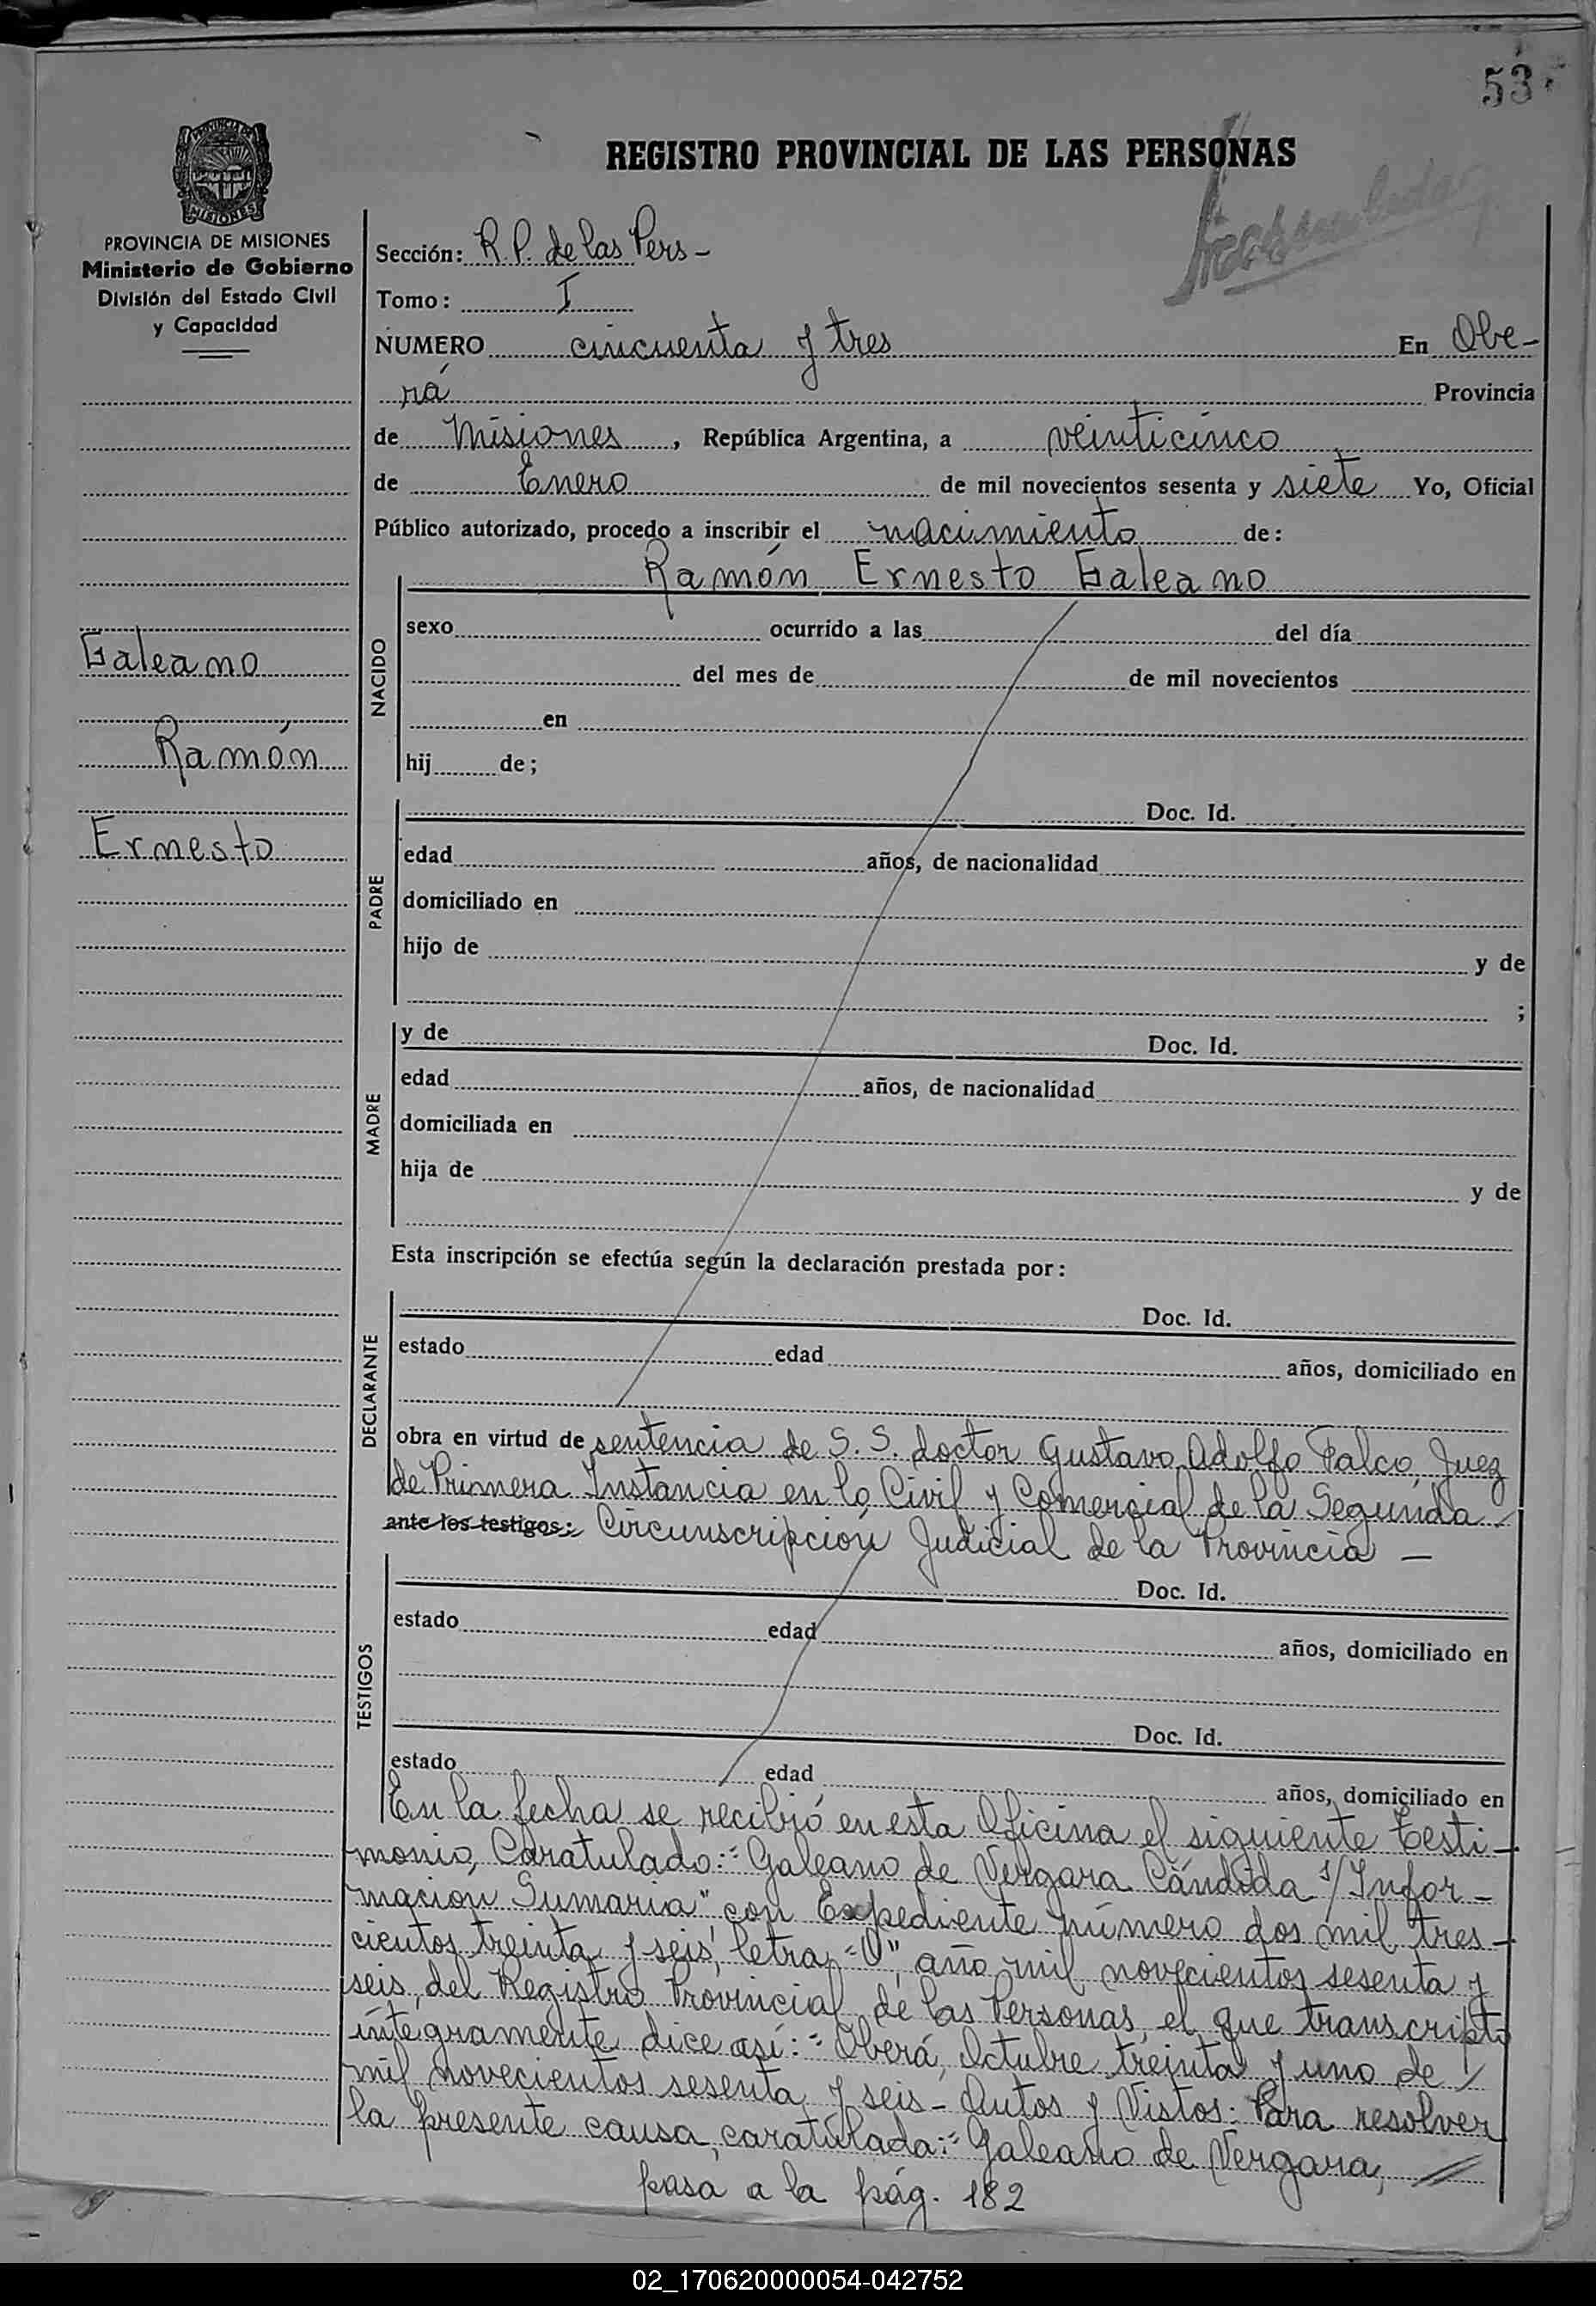 53
REGISTRO PROVINCIAL DE LAS PERSONAS
PROVINCIA DE MISIONES
Ministerio de Gobierno
División del Estado Civil
y Capacidad
Sección: R. P. de las Pers -
Tomo: I
NUMERO cincuenta y tres En Obe-
rá Provincia
de Misiones, República Argentina, a veinticinco
de Enero de mil novecientos sesenta y siete Yo, Oficial
Público autorizado, procedo a inscribir el nacimiento de:
Ramón Ernesto Galeano
Galeano
Ramón
Ernesto
NACIDO
sexo ocurrido a las del día
del mes de de mil novecientos
en
hij de;
PADRE
Doc. Id.
edad años, de nacionalidad
domiciliado en
hijo de y de
;
MADRE
y de Doc. Id.
edad años, de nacionalidad
domiciliada en
hija de y de
Esta inscripción se efectúa según la declaración prestada por:
DECLARANTE
Doc. Id.
estado edad años, domiciliado en
obra en virtud de sentencia de S. S. doctor Gustavo Adolfo Falco, Juez
de Primera Instancia en lo Civil y Comercial de la Segunda
ante los testigos: Circunscripción Judicial de la Provincia —
TESTIGOS
Doc. Id.
estado edad años, domiciliado en
Doc. Id.
estado edad años, domiciliado en
En la fecha se recibió en esta Oficina el siguiente Testi-
monio, Caratulado: "Galeano de Vergara Cándida s/ Infor-
macion Sumaria", con Expediente número dos mil tres-
cientos treinta y seis, letra "O", año mil novecientos sesenta y
seis, del Registro Provincial de las Personas, el que transcripto
integramente dice así: "Oberá, Octubre treinta y uno de
mil novecientos sesenta y seis - Autos y Vistos: Para resolver
la presente causa, caratulada: "Galeano de Vergara,
pasa a la pág. 182
02_170620000054-042752